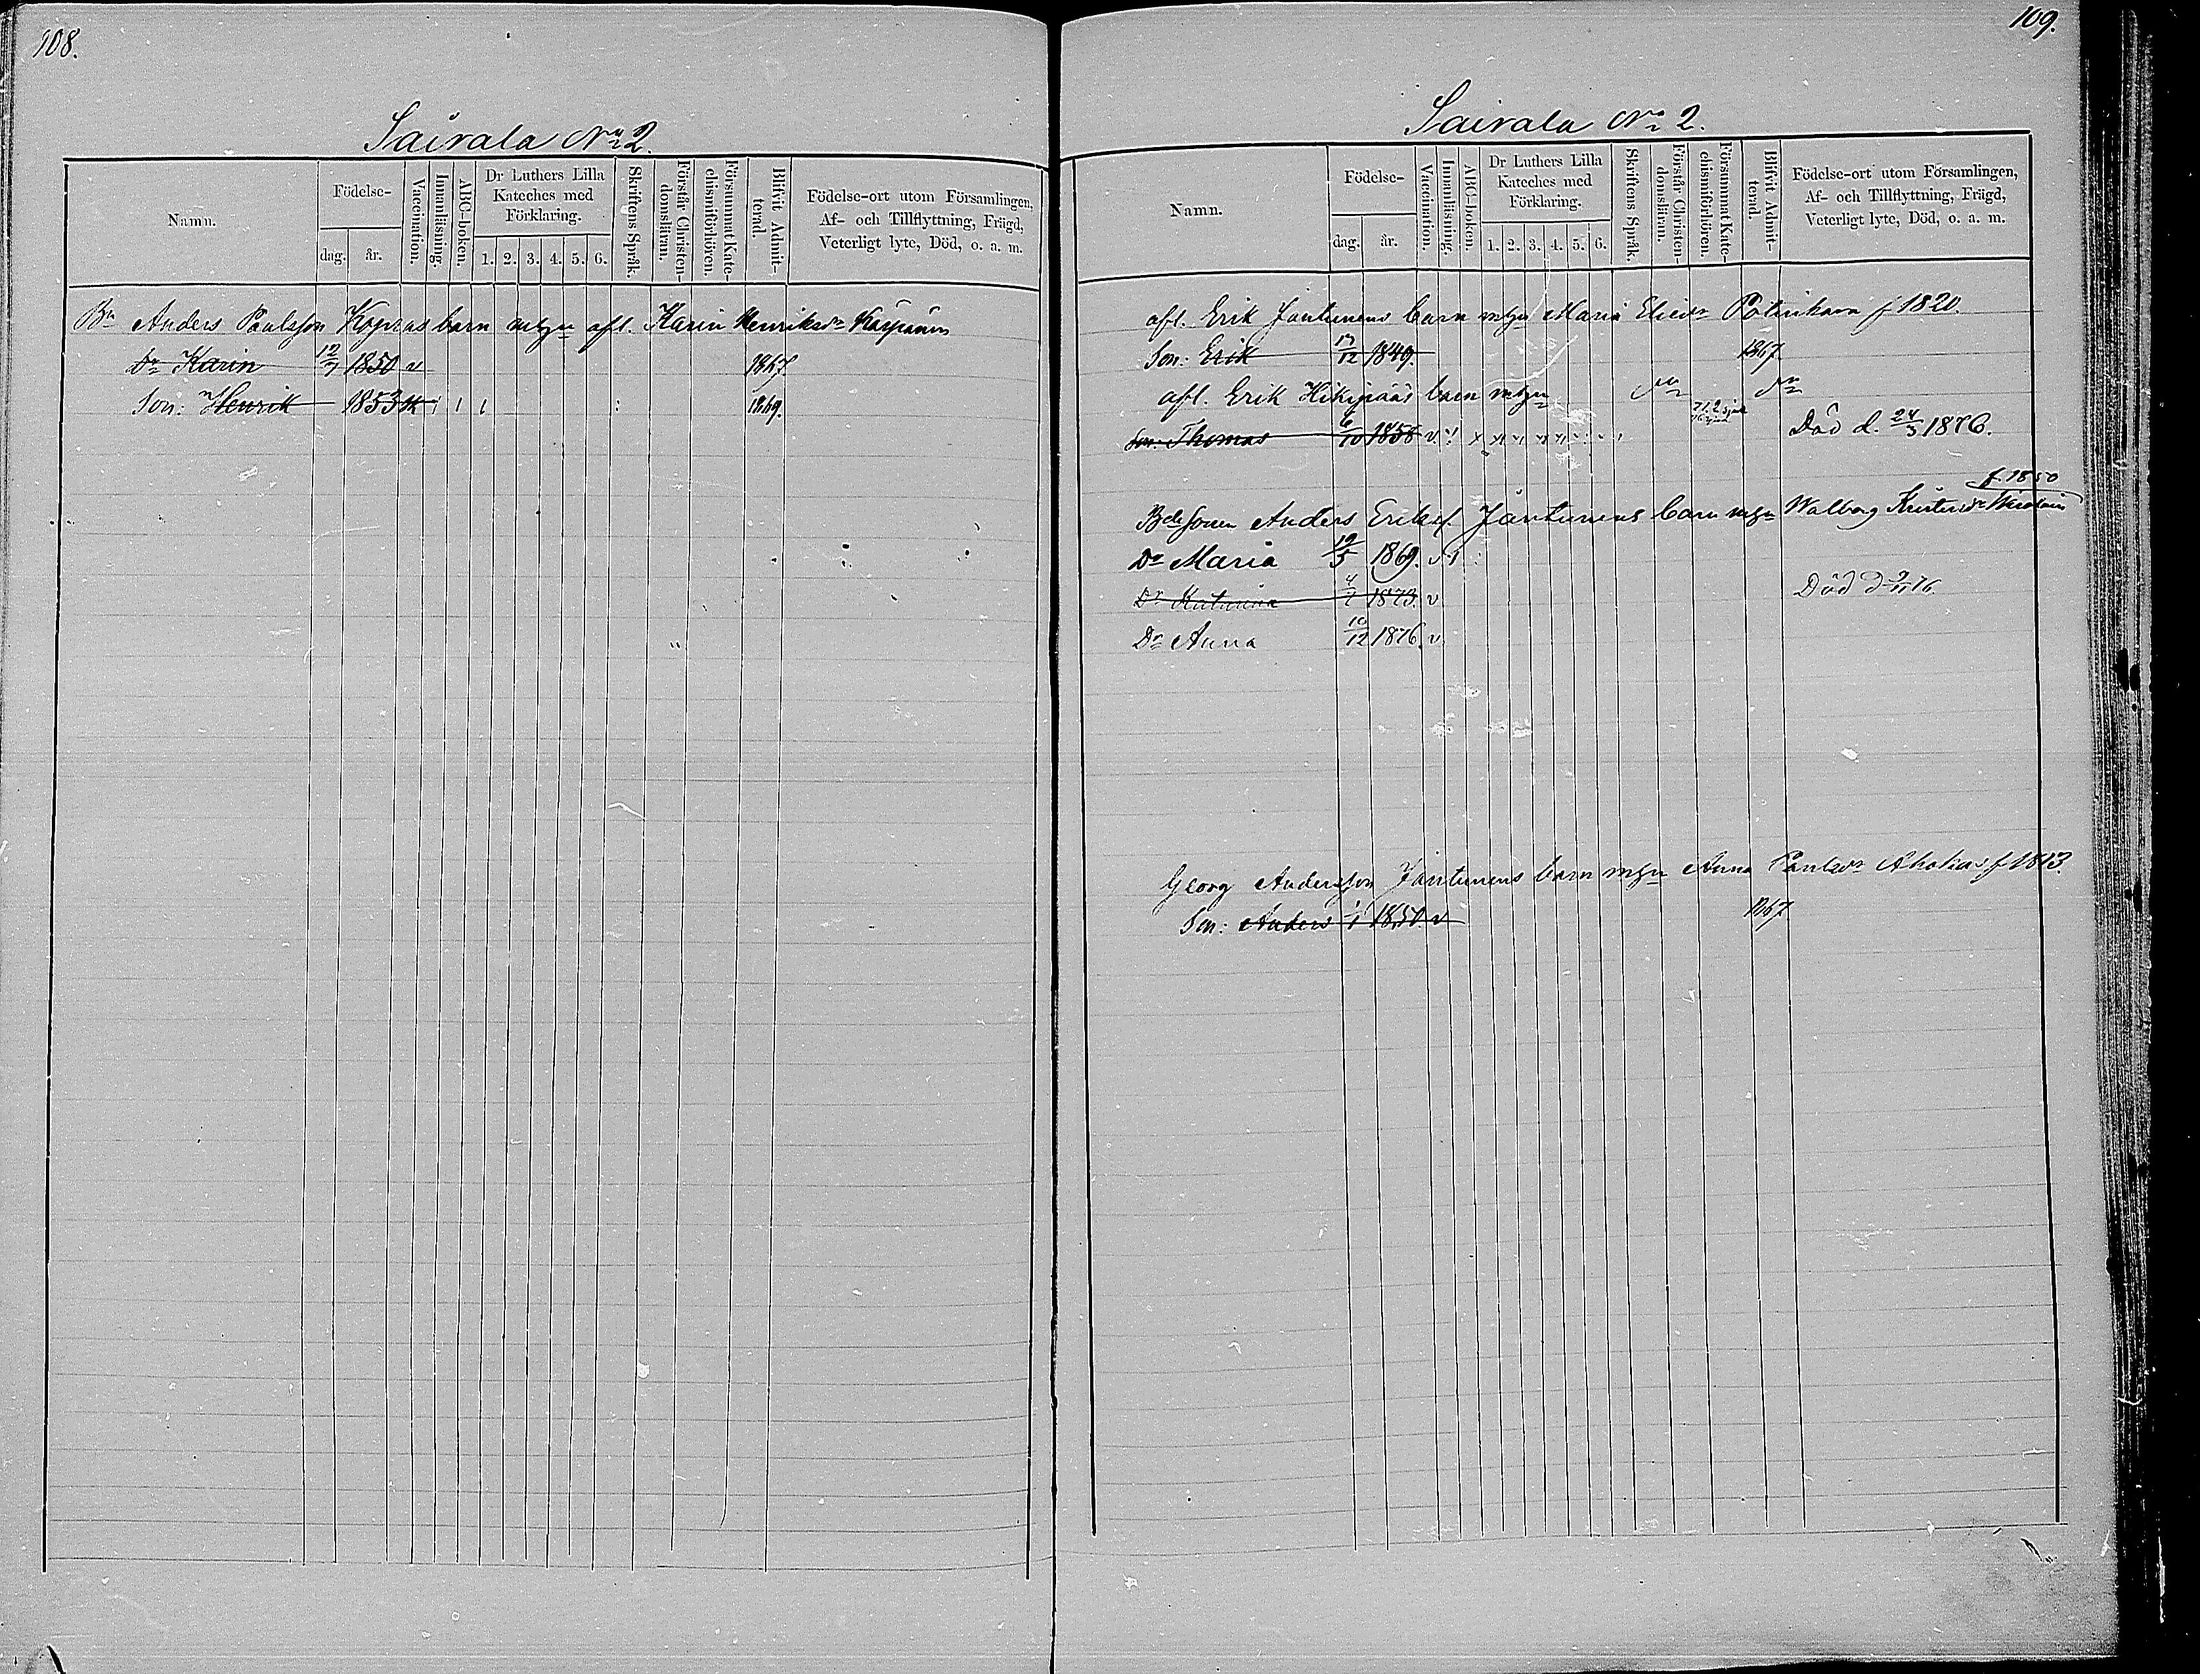 108.
Sairala No 2.
Namn.
Födelse-
dag.
år.
Vaccination.
Innanläsning.
ABC-boken.
Dr Luthers Lilla
Kateches med
Förklaring.
1. 2. 3. 4. 5. 6.
Skriftens Språk.
Förstår Christen-
domsläran.
Försummat Kate-
chismiförhören.
Blifvit Admit-
terad.
Födelse-ort utom Församlingen,
Af- och Tillflyttning, Frägd,
Veterligt lyte, Död, o. a. m.
Bn Anders Paulsson Kopras barn afl. Karin Henriksdr
Dr Karin 12/7 1850 v 1867.
Son: Henrik 1853 1869.
109.
Sairala No 2.
Namn.
Födelse-
dag.
år.
Vaccination.
Innanläsning.
ABC-boken.
Dr Luthers Lilla
Kateches med
Förklaring.
1. 2. 3. 4. 5. 6.
Skriftens Språk.
Förstår Christen-
domsläran.
Försummat Kate-
chismiförhören.
Blifvit Admit-
terad.
Födelse-ort utom Församlingen,
Af- och Tillflyttning, Frägd,
Veterligt lyte, Död, o. a. m.
afl. Erik Jantunens barn Maria f 1820.
Son: Erik 1849. 1867.
afl. Erik barn
Son: Thomas 6/10 1858 v Död d. 24/5 1876.
f. 1850
Anders Eriks. Jantunens barn Walborg
Dr Maria 19/5 1869. v
Dr 1873. v Död d 76.
Dr Anna 10/12 1876. v
Georg Andersson Jantunens barn Anna Paulsdr f 1813.
Son: Anders 1850. v 1867